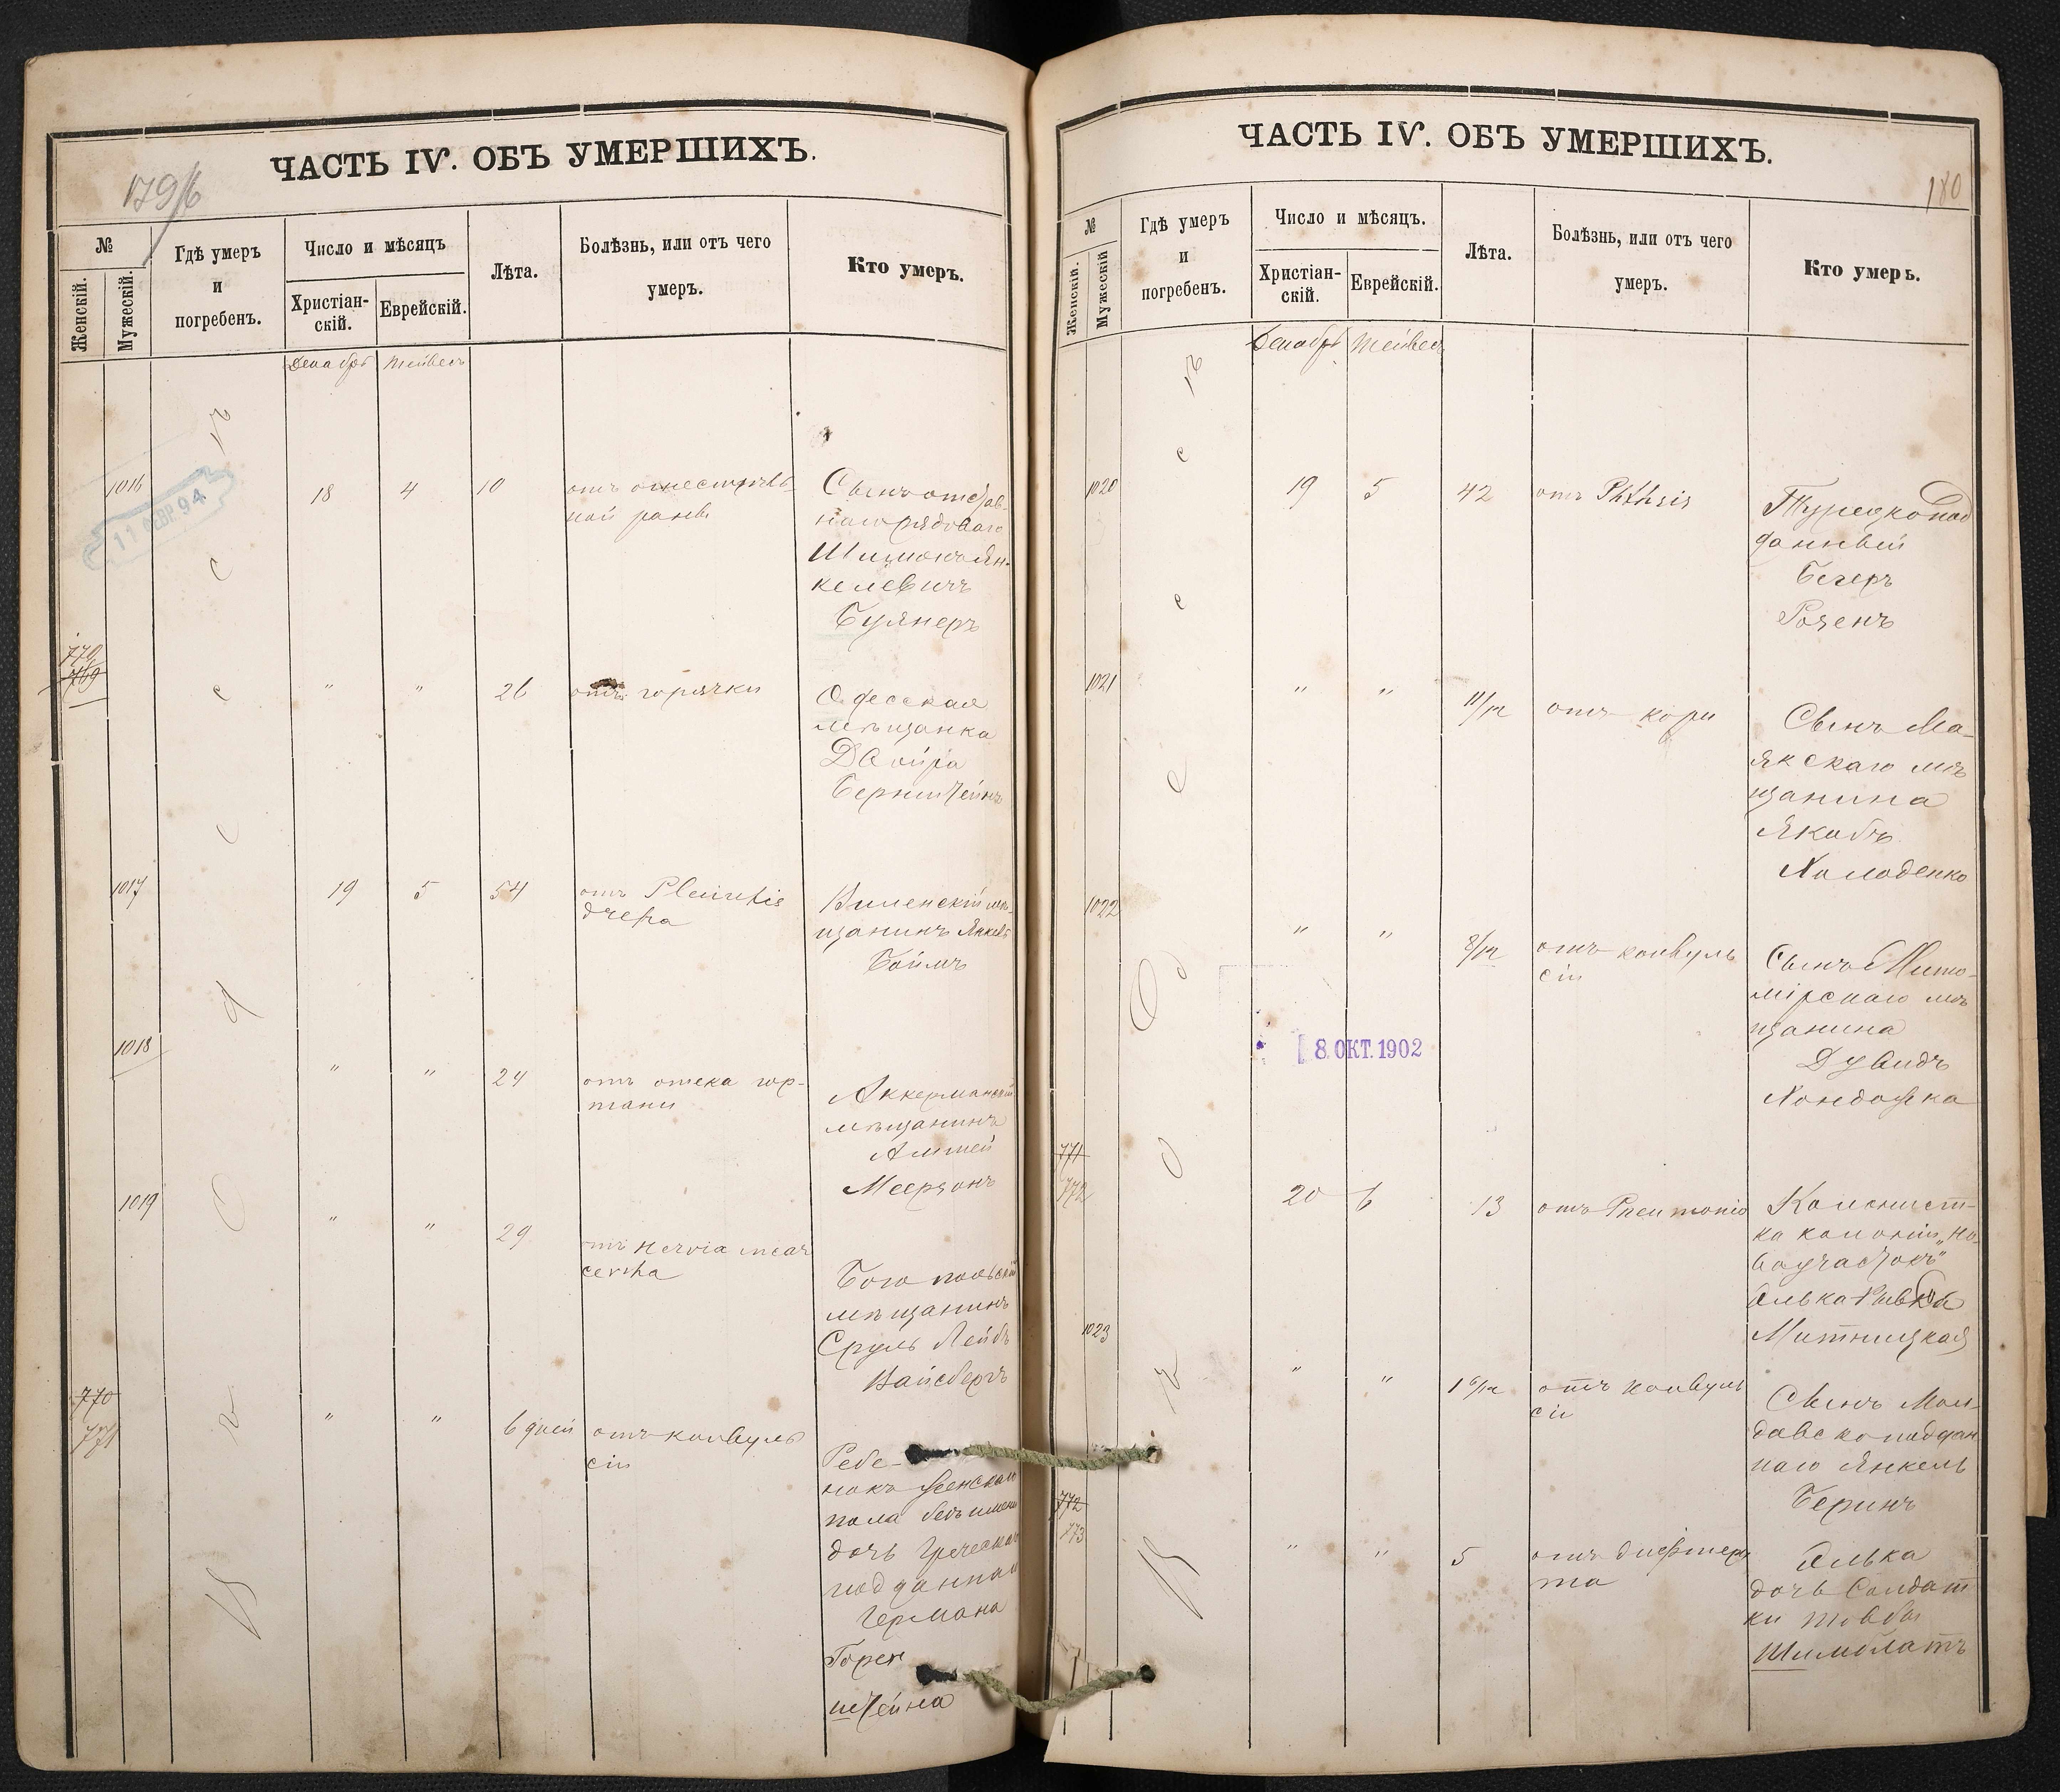 ЧАСТЬ IV. ОБЪ УМЕРШИХЪ.
179/б
№
Женскій.
Мужескій.
Гдѣ умеръ
и
погребенъ.
Число и мѣсяцъ
Христіан-
скій.
Еврейскій.
Лѣта.
Болѣзнь, или отъ чего
умеръ.
Кто умеръ.
Декабрь
Тейвесъ
1016
18
4
10
отъ огнестрѣль-
ной раны
Сынъ отстав-
наго рядоваго
Шимонъ Ян-
келевичъ
Булнеръ
11 ФЕВР. 94
770
769
"
"
26
отъ горячки
Одесская
мѣщанка
Двойра
Бернштейнъ
1017
19
5
54
отъ
Виленскій мѣ-
щанинъ Янкель
Боймъ
1018
"
"
24
отъ отека гор-
тани
Аккерманскій
мѣщанинъ
Меерзонъ
1019
"
"
29
отъ
Богопольскій
мѣщанинъ
Сруль Лейбъ
Вайсбергъ
770
771
"
"
6 дней
отъ конвуль
сіи
Ребе-
нокъ женскаго
пола безъ имени
дочь Греческаго
подданнаго
Германа
Горен
штейна
Въ г. Одессѣ
ЧАСТЬ IV. ОБЪ УМЕРШИХЪ.
180
№
Женскій.
Мужескій
Гдѣ умеръ
и
погребенъ.
Число и мѣсяцъ.
Христіан-
скій.
Еврейскій.
Лѣта.
Болѣзнь, или отъ чего
умеръ.
Кто умеръ.
Декабрь
Тейвесъ
1020
19
5
42
отъ Phthsis
Турецкопод
данный
Бегеръ
Розенъ
1021
"
"
11/12
отъ кори
Сынъ Ма-
якскаго мѣ
щанина
Якобъ
Холоденко
1022
"
"
8/12
отъ конвуль
сіи
Сынъ Жито-
мірскаго мѣ
щанина
Дувидъ
Хондожка
8. ОКТ. 1902
771
772
20
6
13
отъ Pneumonio
Колонист-
ка колоніи „Но-
воучастокъ"
Элька Рывка
Митницкая
1023
"
"
1 6/12
отъ конвуль
сіи
Сынъ Мол-
давскоподдан
наго Янкель
Беринъ
772
773
"
"
5
отъ дифтери
та
Элька
дочь Солдат
ки Товбы
Шимблатъ
Въ г. Одессѣ